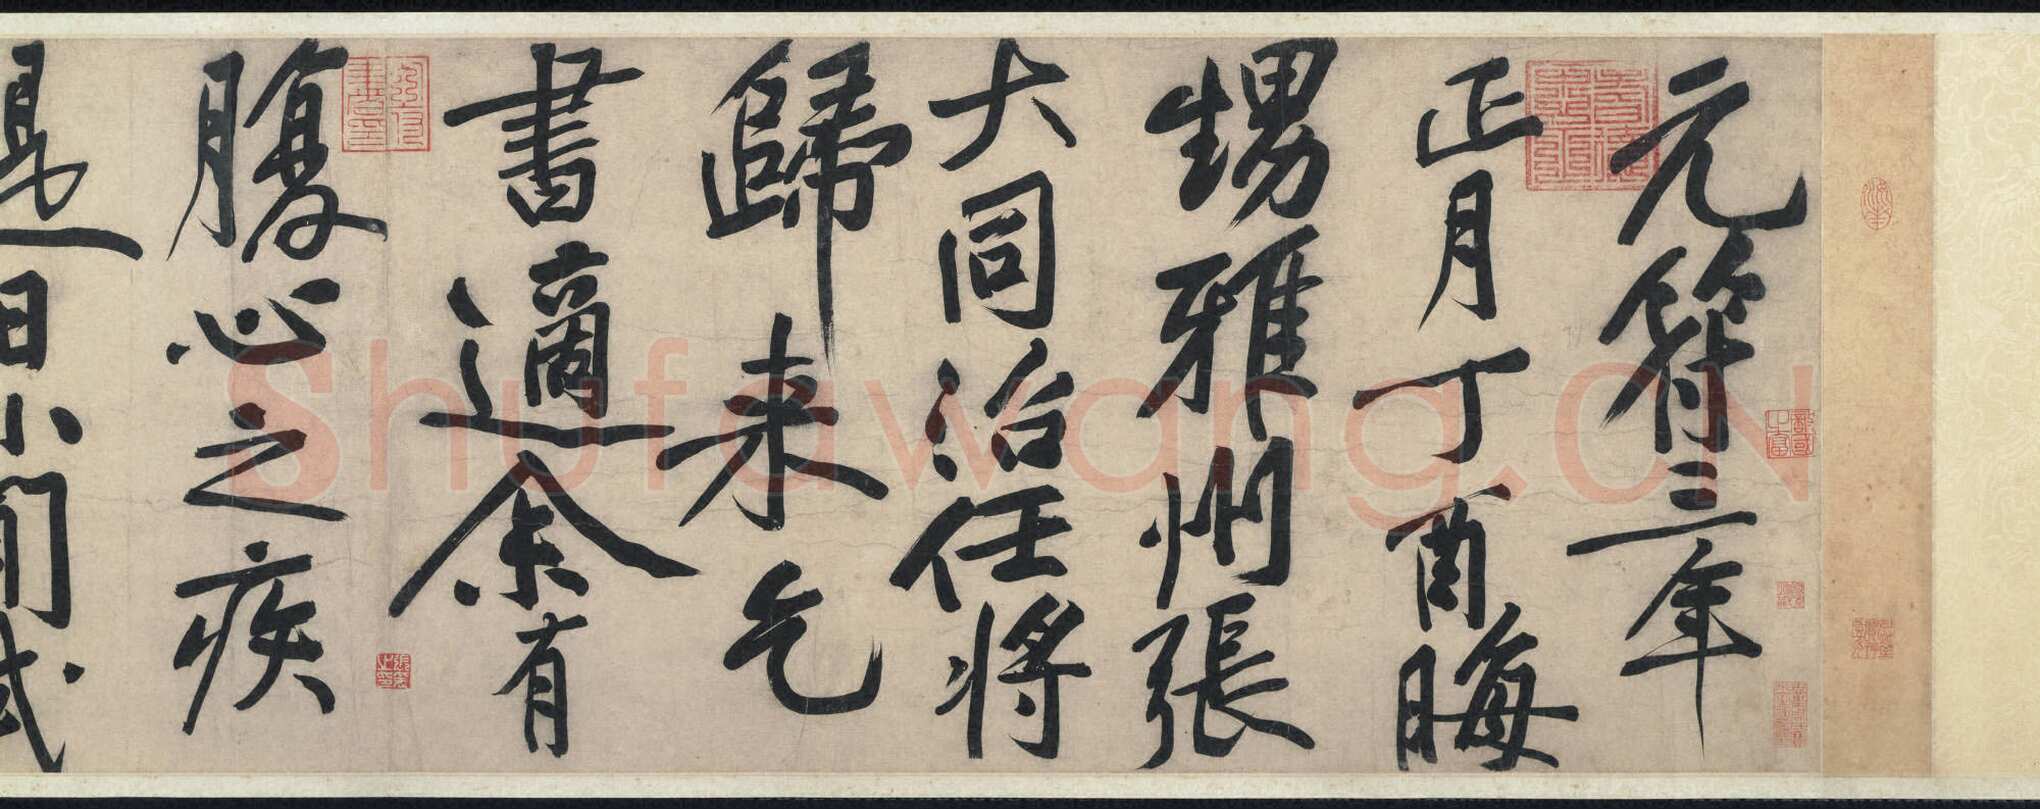 元符三年
正月丁酉晦
甥雅州張
大同治任將
歸来乞
書適余有
腹心之疾
是日小閒試
Shufawang.CN